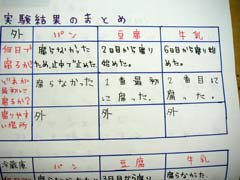 実験結果のまとめ
外 パン 豆腐 牛乳
何日で 腐らなかった 2日目から腐り 6日目から腐り始
腐るか ため、途中で止めた。 始めた。 めた。
どれが 腐らなかった 1番最初 2番目に
最初に に腐った。 腐った。
腐るか?
腐りやす 外 外 外
い場所
冷蔵庫 パン 豆腐 牛乳
3日目から腐り 腐らなかった